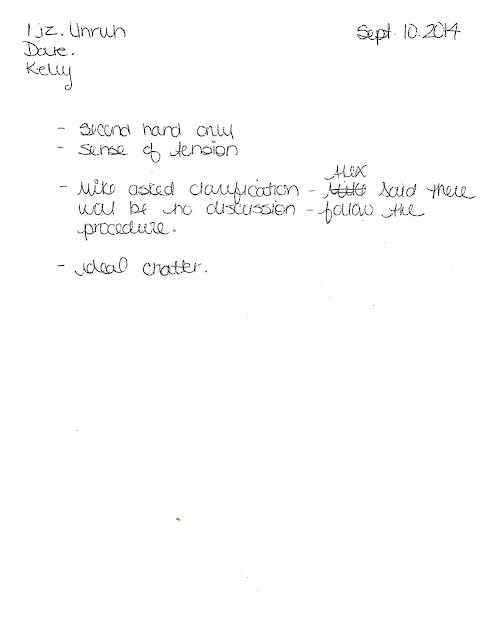 Liz. Unruh
Sept. 10. 2014
Dave.
Kelly
- second hand only
- sense of tension
ALEX
- Mike asked clarification - Mike said there
will be no discussion - follow the
procedure.
- ideal chatter.